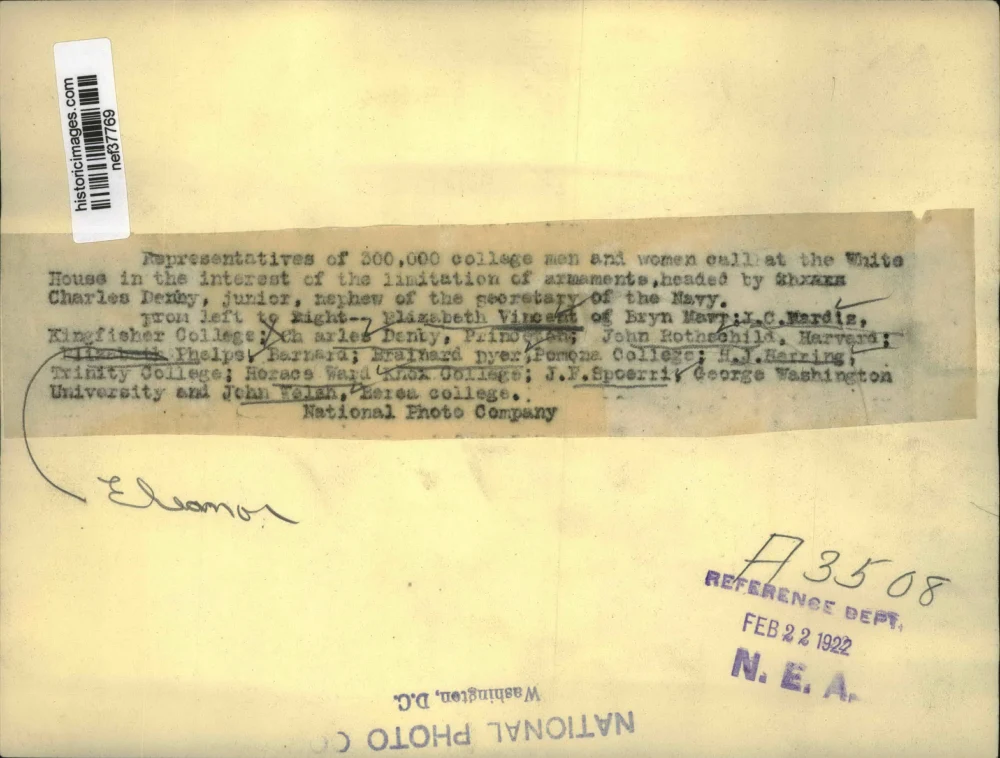 historicimages.com
nef37769
Representatives of 300,000 college men and women call at the White
House in the interest of the limitation of armaments,headed by
Charles Denby, junior, nephew of the secretary of the Navy.
From left to Right-- Elizabeth Vincent of Bryn Mawr;L.C.Mardis,
Kingfisher College; Ch arles Denty, Princeton; John Rothschild, Harvard;
Elizabeth Phelps, Barnard; Brainard Dyer,Pomona College; H.J.Herring,
Trinity College; Horace Ward Knox College; J.F.Spoerri, George Washington
University and John Welsh, Berea college.
National Photo Company
Eleanor
A3508
REFERENCE DEPT.
FEB 22 1922
N. E. A.
Washington, D.C.
NATIONAL PHOTO CO